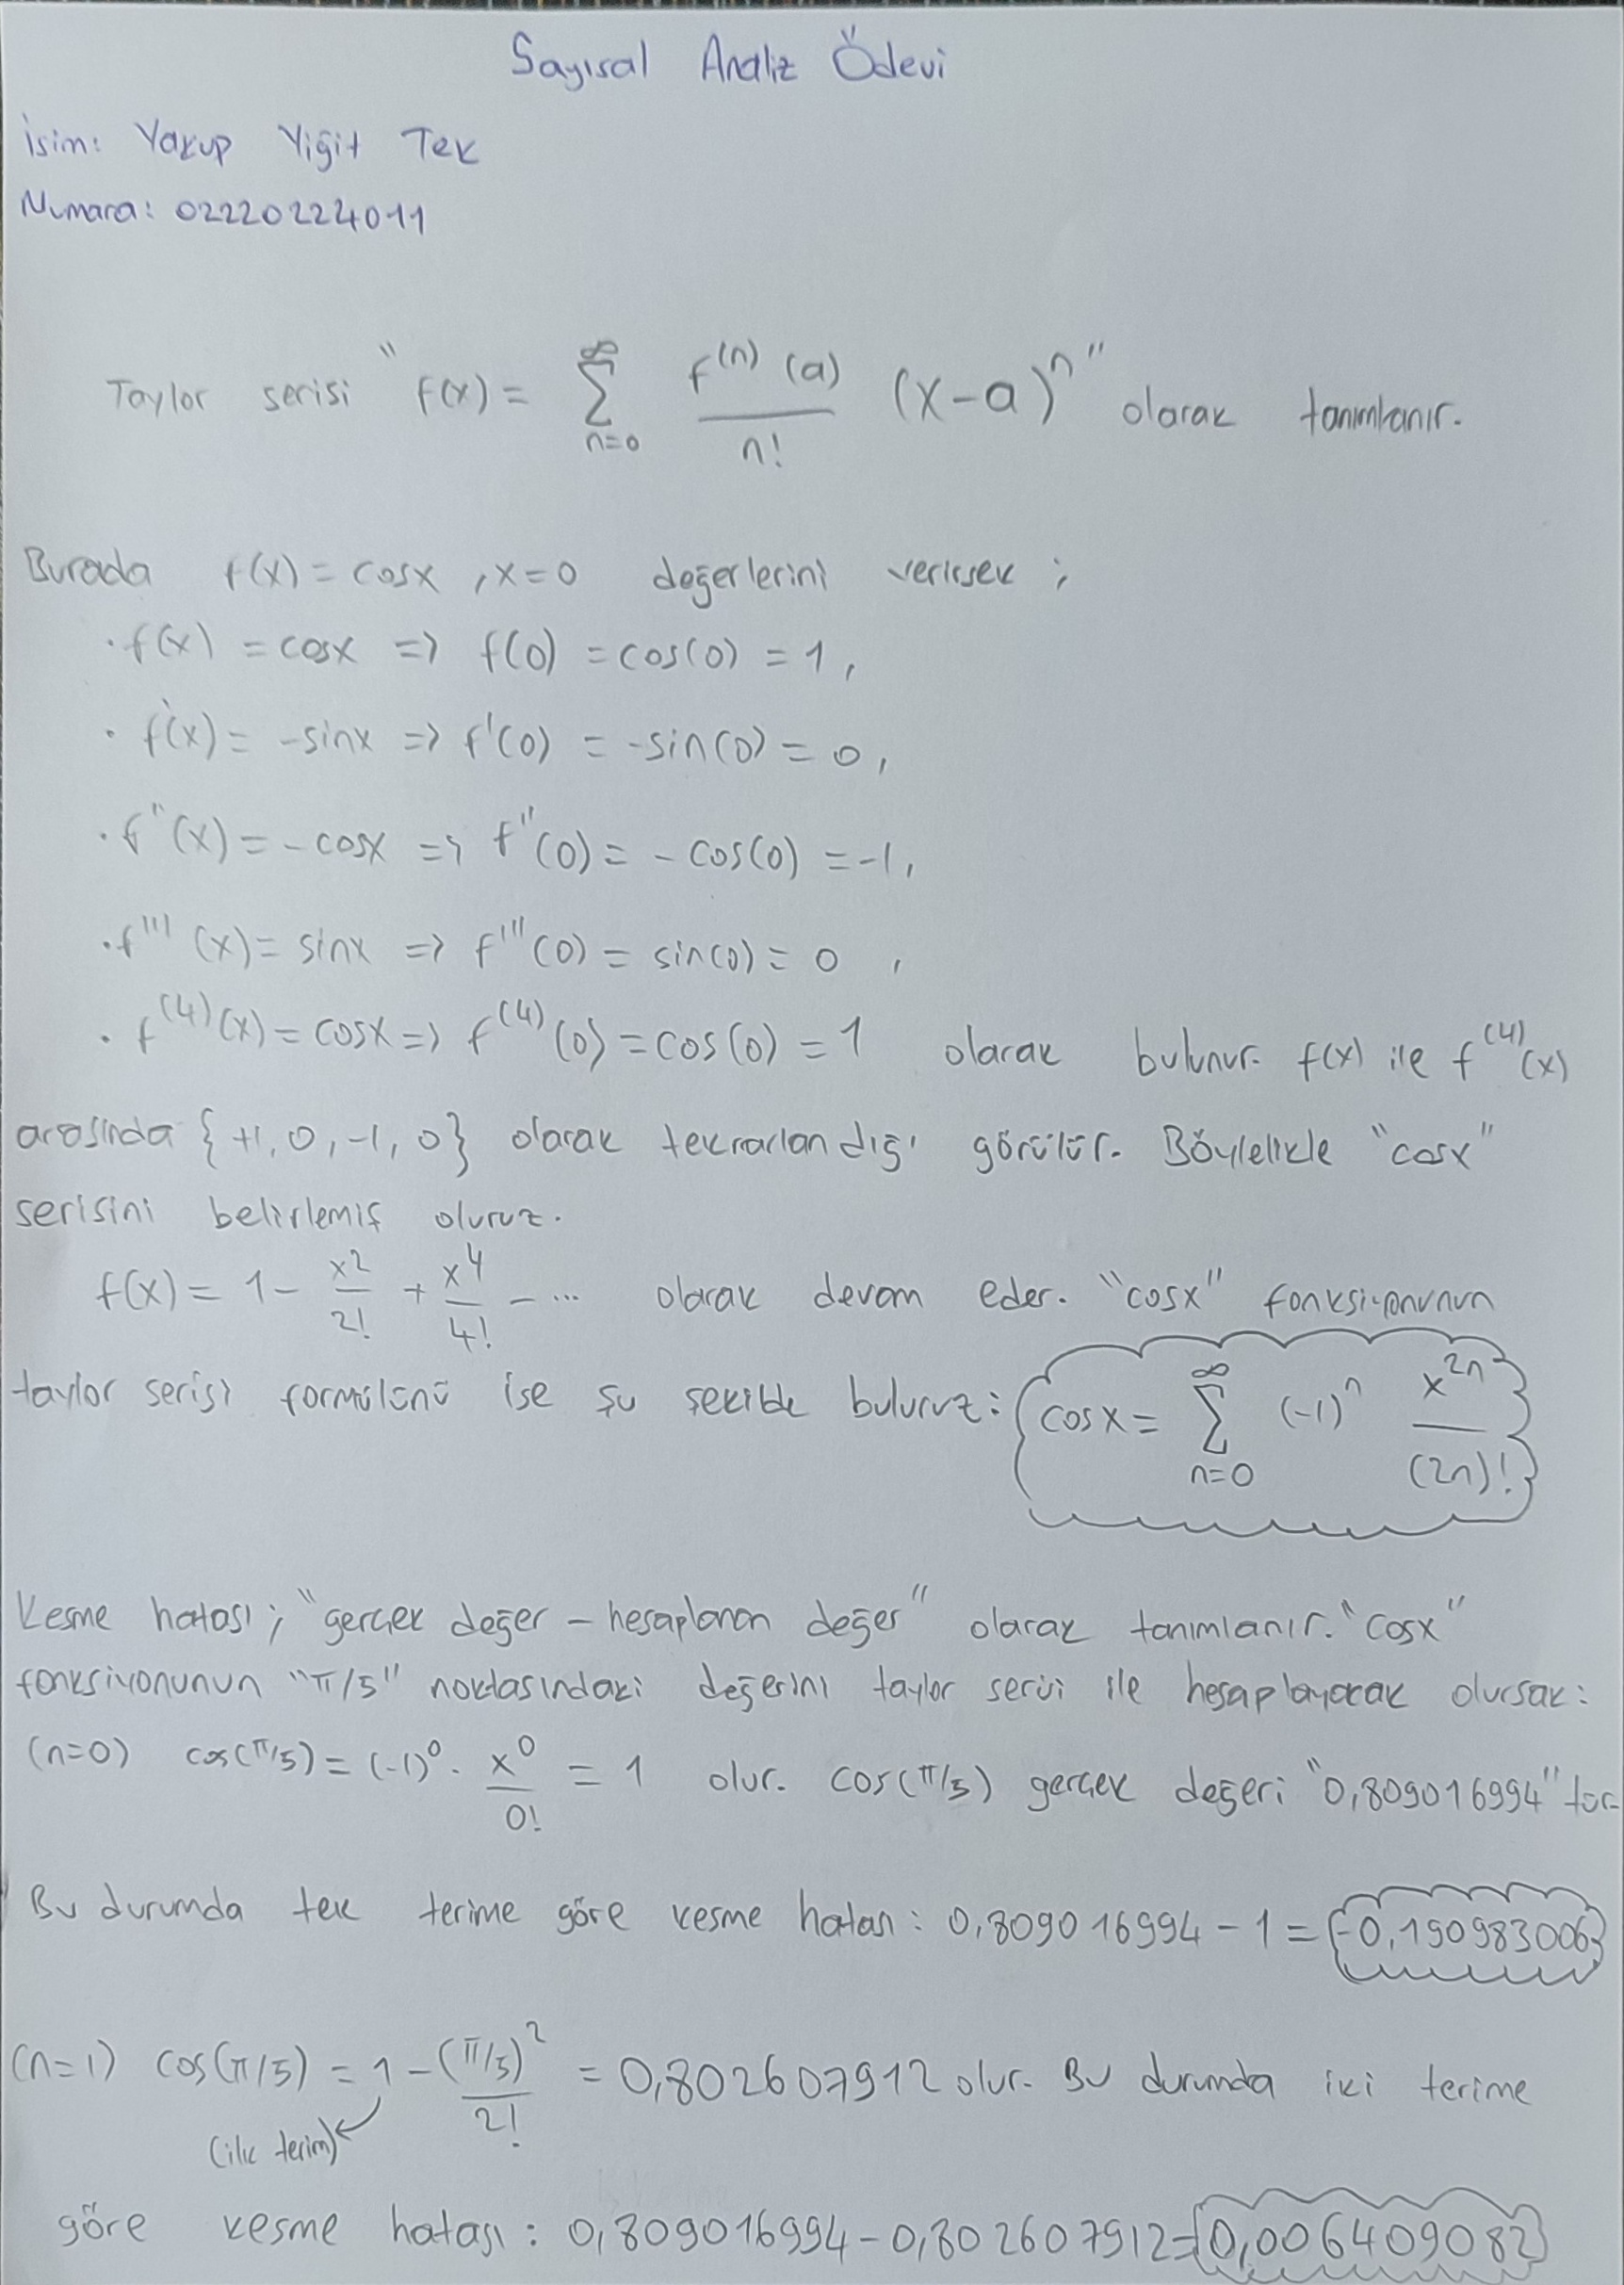 Sayısal Analiz Ödevi
İsim: Yakup Yiğit Tek
Numara: 02220224011
Taylor serisi "f(x) = ∑_{n=0}^{∞} f^{(n)}(a)/n! (x-a)^n" olarak tanımlanır.
Burada f(x) = cosx, x=0 değerlerini verirsek;
· f(x) = cosx => f(0) = cos(0) = 1,
· f'(x) = -sinx => f'(0) = -sin(0) = 0,
· f''(x) = -cosx => f''(0) = -cos(0) = -1,
· f'''(x) = sinx => f'''(0) = sin(0) = 0,
· f^{(4)}(x) = cosx => f^{(4)}(0) = cos(0) = 1 olarak bulunur. f(x) ile f^{(4)}(x)
arasında {+1, 0, -1, 0} olarak tekrarlandığı görülür. Böylelikle "cosx"
serisini belirlemiş oluruz.
f(x) = 1 - x^2/2! + x^4/4! - ... olarak devam eder. "cosx" fonksiyonunun
taylor serisi formülünü ise şu şekilde buluruz: cosx = ∑_{n=0}^{∞} (-1)^n x^{2n}/(2n)!
Kesme hatası; "gerçek değer - hesaplanan değer" olarak tanımlanır. "cosx"
fonksiyonunun "π/5" noktasındaki değerini taylor serisi ile hesaplayacak olursak:
(n=0) cos(π/5) = (-1)^0 · x^0/0! = 1 olur. cos(π/5) gerçek değeri "0,809016994" tür.
Bu durumda tek terime göre kesme hatası: 0,809016994 - 1 = -0,190983006
(n=1) cos(π/5) = 1 - (π/5)^2/2! = 0,802607912 olur. Bu durumda iki terime
(ilk terim)
göre kesme hatası: 0,809016994 - 0,802607912 = 0,006409082